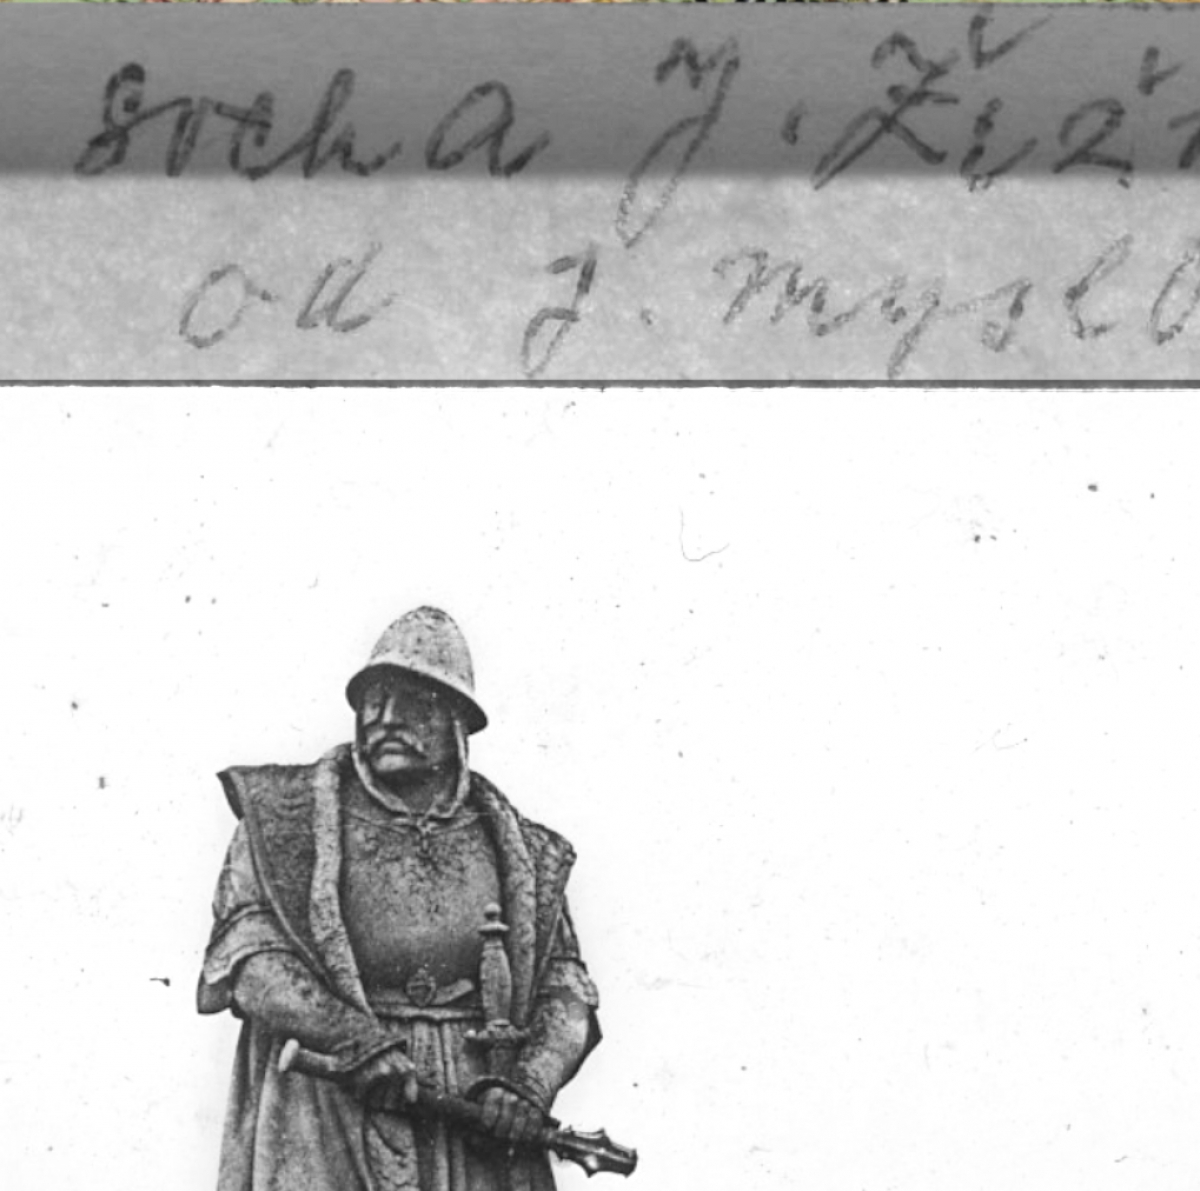 socha J. Žiž
od J. Myslb